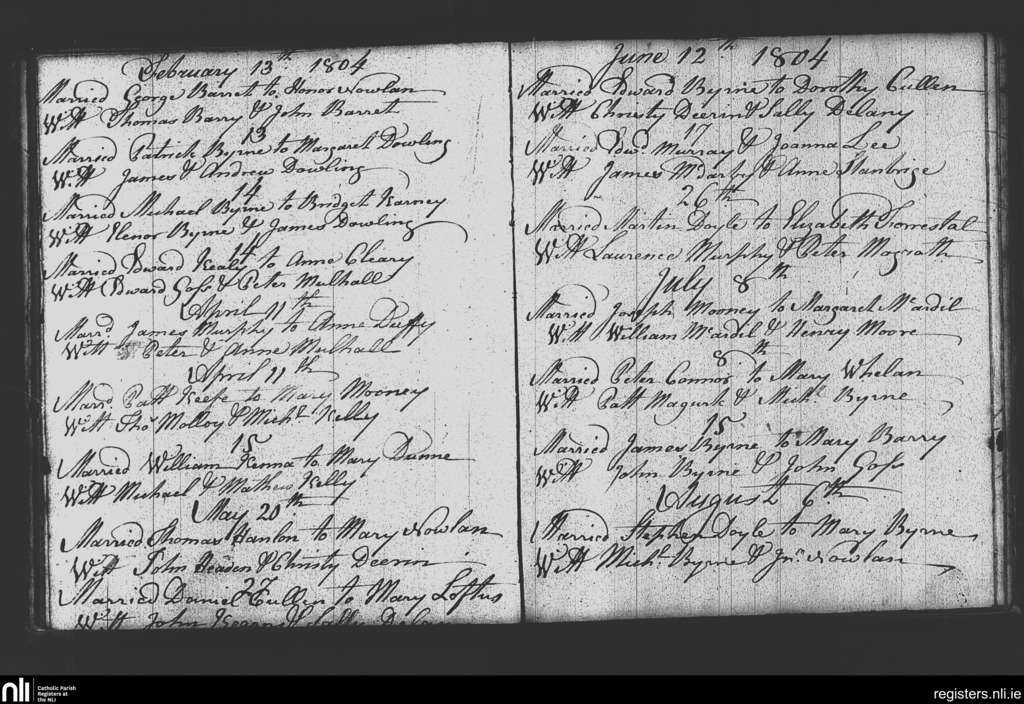 February 13th 1804
Married George Barret to Honor Nowlan
Witt Thomas Barry & John Barret
13
Married Patrick Byrne to Margaret Dowling
Witt James & Andrew Dowling
14
Married Michael Byrne to Bridget Karney
Witt Elenor Byrne & James Dowling
14
Married Edward Kealy to Anne Cleary
Witt Edward Goss & Peter Mulhall
April 11th
Marrd James Murphy to Anne Duffy
Witt Peter & Anne Mulhall
April 11th
Marrd Patt Keefe to Mary Mooney
Witt Thos Molloy & Michl Kelly
15
Married William Kenna to Mary Dunne
Witt Michael & Mathew Kelly
May 20th
Married Thomas Hanlon to Mary Nowlan
Witt John Headen & Christy Deerin
27
Married Daniel Cullen to Mary Loftus
Witt John & Sally Delany
June 12th 1804
Married Edward Byrne to Dorothy Cullen
Witt Christy Deerin & Sally Delany
17
Married Edwd Murray & Joanna Lee
Witt James McDarby & Anne Stanbrige
26th
Married Martin Doyle to Elizabeth Forrestal
Witt Laurence Murphy & Peter Magrath
July 8th
Married Joseph Mooney to Margaret McArdil
Witt William McArdil & Henray Moore
8th
Married Peter Connor to Mary Whelan
Witt Patt Magurk & Michl Byrne
15
Married James Byrne to Mary Barry
Witt John Byrne & John Goss
August 6th
Married Stephen Doyle to Mary Byrne
Witt Michl Byrne & Jn Nowlan
nli
Catholic Parish
Registers at
the NLI
registers.nli.ie